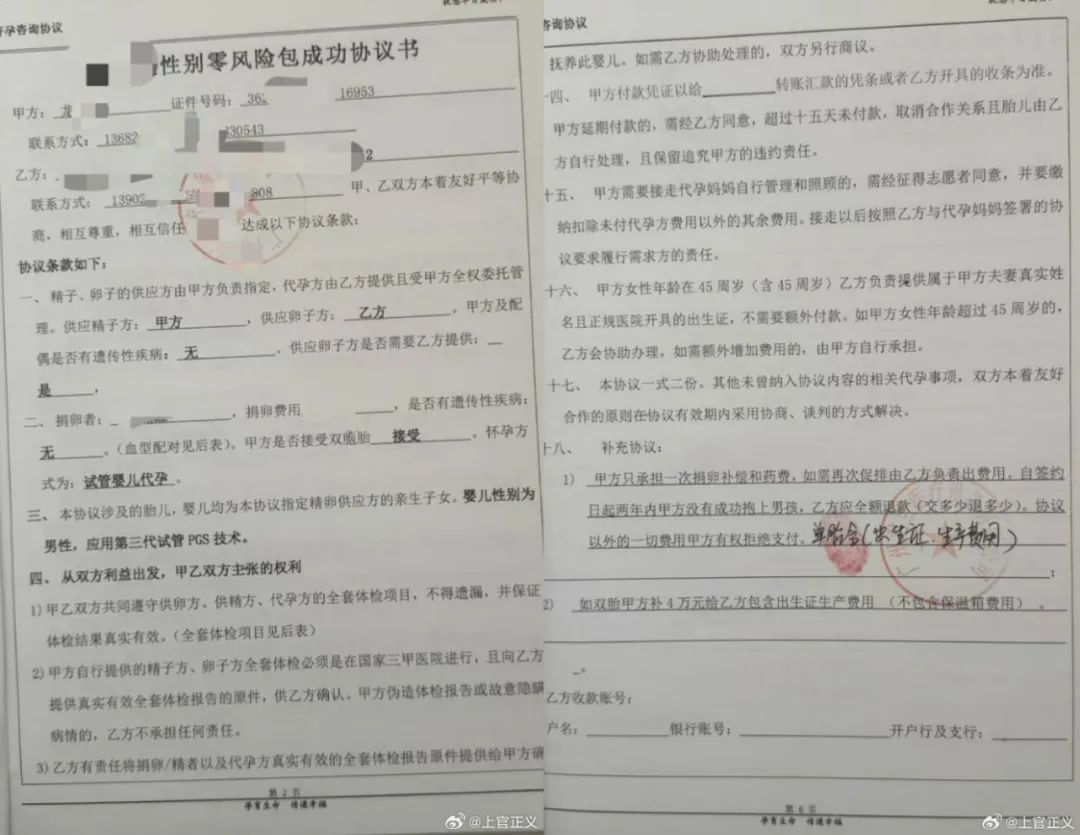 孕咨询协议
性别零风险包成功协议书
甲方：龙 证件号码：36 16953
联系方式：13682 30543
乙方： 2
联系方式：13902 808 甲、乙双方本着友好平等协
商，相互尊重，相互信任 达成以下协议条款：
协议条款如下：
一、 精子、卵子的供应方由甲方负责指定，代孕方由乙方提供且受甲方全权委托管
理。供应精子方： 甲方 ，供应卵子方： 乙方 。甲方及配
偶是否有遗传性疾病： 无 。供应卵子方是否需要乙方提供：
是 ，
二、 捐卵者： ，捐卵费用 ，是否有遗传性疾病：
无 。（血型配对见后表）。甲方是否接受双胞胎 接受 。怀孕方
式为：试管婴儿代孕 。
三、 本协议涉及的胎儿，婴儿均为本协议指定精卵供应方的亲生子女。婴儿性别为
男性，应用第三代试管 PGS 技术．
四、 从双方利益出发，甲乙双方主张的权利
1) 甲乙双方共同遵守供卵方、供精方、代孕方的全套体检项目，不得遗漏，并保证
体检结果真实有效。（全套体检项目见后表）
2) 甲方自行提供的精子方、卵子方全套体检必须是在国家三甲医院进行，且向乙方
提供真实有效全套体检报告的原件，供乙方确认。甲方伪造体检报告或故意隐瞒
病情的，乙方不承担任何责任。
3) 乙方有责任将捐卵/精者以及代孕方真实有效的全套体检报告原件提供给甲方确
第 2 页
孕育生命 传递幸福
@上官正义
咨询协议
抚养此婴儿。如需乙方协助处理的，双方另行商议。
十四、 甲方付款凭证以给 转账汇款的凭条或者乙方开具的收条为准。
甲方延期付款的，需经乙方同意，超过十五天未付款，取消合作关系且胎儿由乙
方自行处理，且保留追究甲方的违约责任。
十五、 甲方需要接走代孕妈妈自行管理和照顾的，需经征得志愿者同意，并要缴
纳扣除未付代孕方费用以外的其余费用。接走以后按照乙方与代孕妈妈签署的协
议要求履行需求方的责任。
十六、 甲方女性年龄在 45 周岁（含 45 周岁）乙方负责提供属于甲方夫妻真实姓
名且正规医院开具的出生证，不需要额外付款。如甲方女性年龄超过 45 周岁的，
乙方会协助办理，如需额外增加费用的，由甲方自行承担。
十七、 本协议一式二份。其他未曾纳入协议内容的相关代孕事项，双方本着友好
合作的原则在协议有效期内采用协商、谈判的方式解决。
十八、 补充协议：
1) 甲方只承担一次捐卵补偿和药费，如需再次促排由乙方负责出费用。自签约
日起两年内甲方没有成功抱上男孩，乙方应全额退款（交多少退多少）。协议
以外的一切费用甲方有权拒绝支付。单胎含（出生证、生产费用）
；
2) 如双胎甲方补 4 万元给乙方包含出生证生产费用 （不包含保温箱费用） 。
。
乙方收款账号：
户名： 银行账号： 开户行及支行：
第 6 页
孕育生命 传递幸福
@上官正义